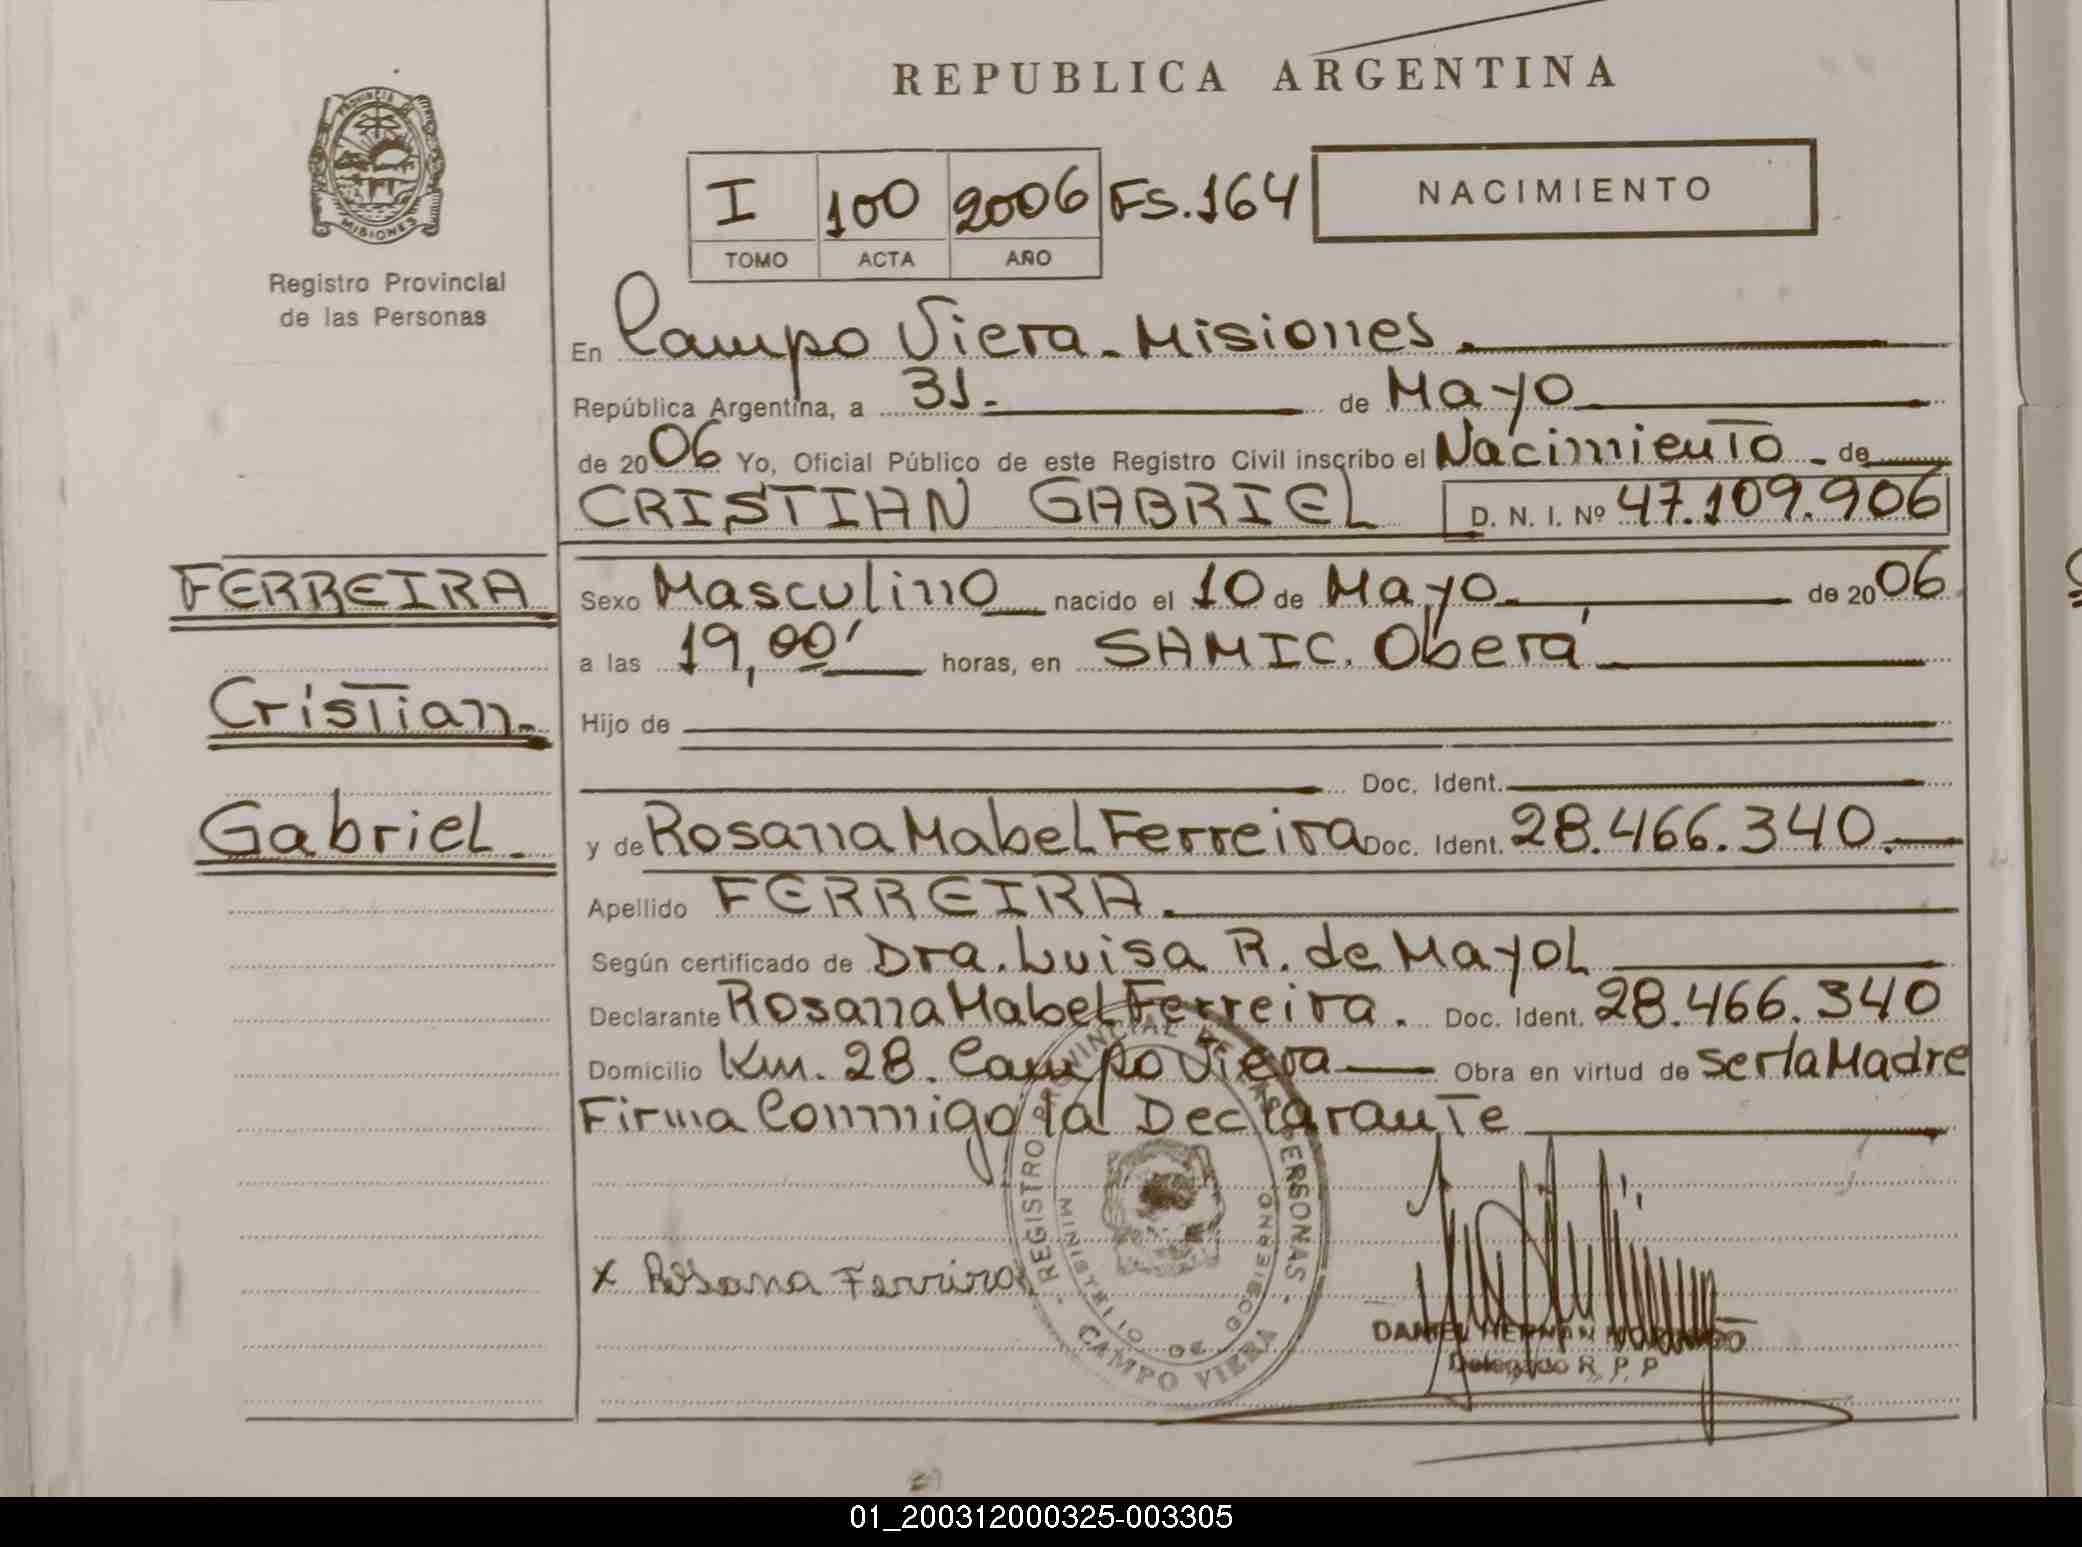 REPUBLICA ARGENTINA
PROVINCIA DE
MISIONES
Registro Provincial
de las Personas
I 100 2006 Fs. 164
TOMO ACTA AÑO
NACIMIENTO
En Campo Viera - Misiones.
República Argentina, a 31. de Mayo
de 2006 Yo, Oficial Público de este Registro Civil inscribo el Nacimiento - de
CRISTIAN GABRIEL D. N. I. Nº 47.109.906
FERREIRA
Cristian.
Gabriel.
Sexo Masculino nacido el 10 de Mayo de 2006
a las 19,00' horas, en SAMIC. Oberá
Hijo de
Doc. Ident.
y de Rosana Mabel Ferreira Doc. Ident. 28.466.340.
Apellido FERREIRA.
Según certificado de Dra. Luisa R. de Mayol
Declarante Rosana Mabel Ferreira. Doc. Ident. 28.466.340
Domicilio Km. 28. Campo Viera Obra en virtud de ser la Madre
Firma Conmigo la Declarante
REGISTRO PROVINCIAL DE LAS PERSONAS
MINISTERIO DE GOBIERNO
CAMPO VIERA
x Rosana Ferreira
DANIEL HERNAN
Delegado R. P. P
01_200312000325-003305